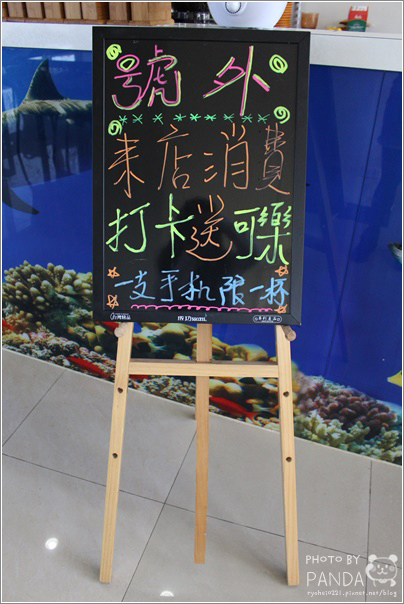 號外
來店消費
打卡送可樂
一支手机限一杯
台灣精品
PHOTO BY
PANDA
ryoho10221.pixnet.net/blog